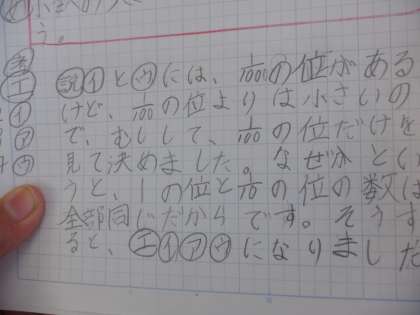 う。
答
エ
イ
ア
ウ
説 イとウには、1/1000の位がある
けど、1/100の位よりは小さいの
で、むしして、1/100の位だけを
見て決めました。なぜかとい
うと、1の位と1/10の位の数は
全部同じだからです。そうす
ると、エイアウになりました